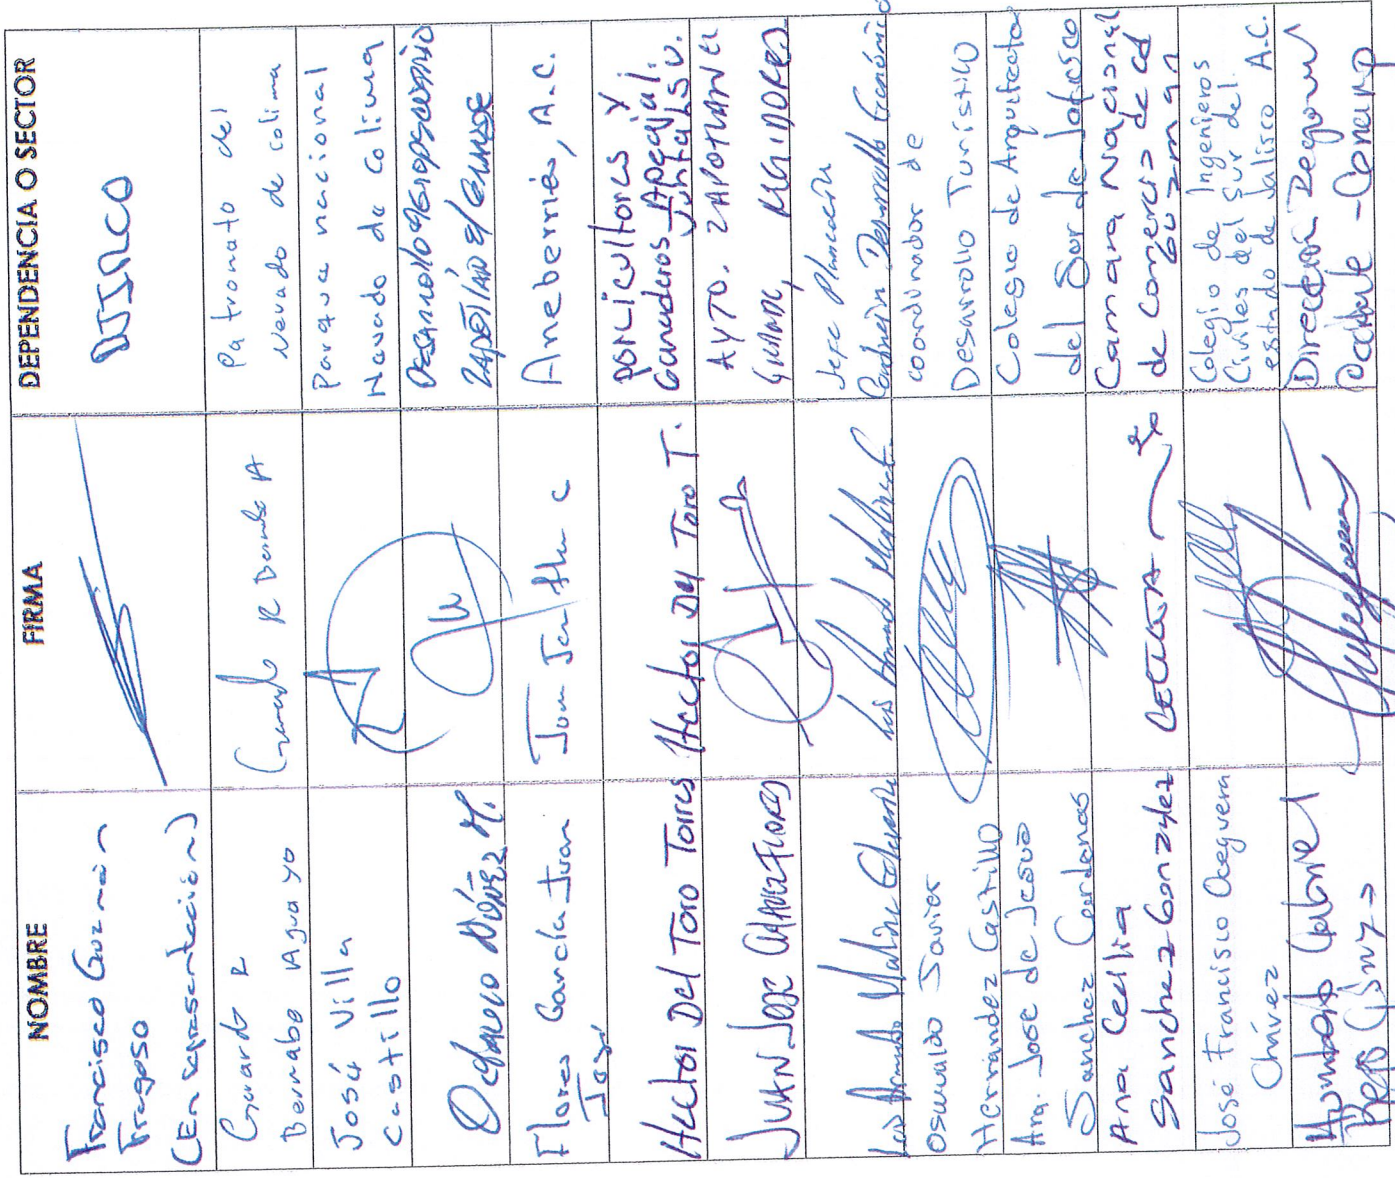 NOMBRE
FIRMA
DEPENDENCIA O SECTOR
Francisco Guzmán
Fragoso
(En representación)
Gerardo R
Bernabe Aguayo
Gerardo R Bernabe A
Patronato del
Nevado de colima
José Villa
Castillo
Parque nacional
Nevado de Colima
Octavio
Desarrollo Agropecuario
Zapotlán el Grande
Flores García Juan
José
Aneberries, A.C.
Hector Del Toro Torres
Hector Del Toro T.
porcicultores y
Ganaderos
JUAN JOSE CHAVEZ FLORES
AYTO. ZAPOTLAN EL
GRANDE, REGIDORES
Luis Armando
Jefe Planeación
Desarrollo Económico
Oswaldo Javier
Hernandez Castillo
coordinador de
Desarrollo Turístico
Arq. Jose de Jesus
Sanchez Cardenas
Colegio de Arquitectos
del Sur de Jalisco
Ana Cecilia
Sanchez Gonzalez
Camara Nacional
de Comercio de cd
Guzman
José Francisco Oceguera
Chávez
Colegio de Ingenieros
Civiles del Sur del
estado de Jalisco A.C.
Humberto Gabriel
Dirección Regional